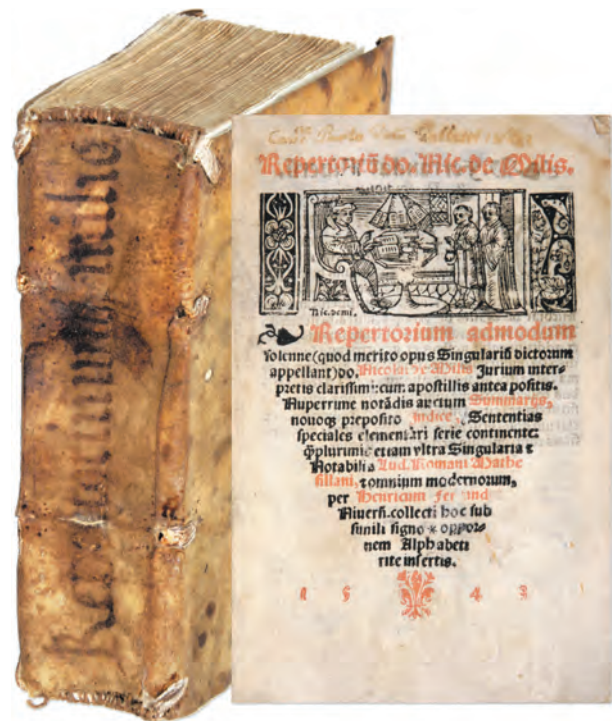 Repertoriũ do. Nic. de Milis.
Nic. de mi.
Repertorium admodum
solenne (quod merito opus Singulariũ dictorum
appellant) do. Nicolai de Milis Jurium inter-
pretis clarissimi: cum apostillis antea positis.
Nuperrime notãdis auctum Summarijs,
nouoqꝫ preposito Indice, Sententias
speciales elementari serie continente:
Qͥplurimis etiam vltra Singularia ⁊
Notabilia Lud. Romani Mathe
sillani, ⁊ omnium modernorum,
per Henricum Fer
Niuerñ. collecti hoc sub
simili signo
nem Alphabeti
rite insertis.
1 5 4 3